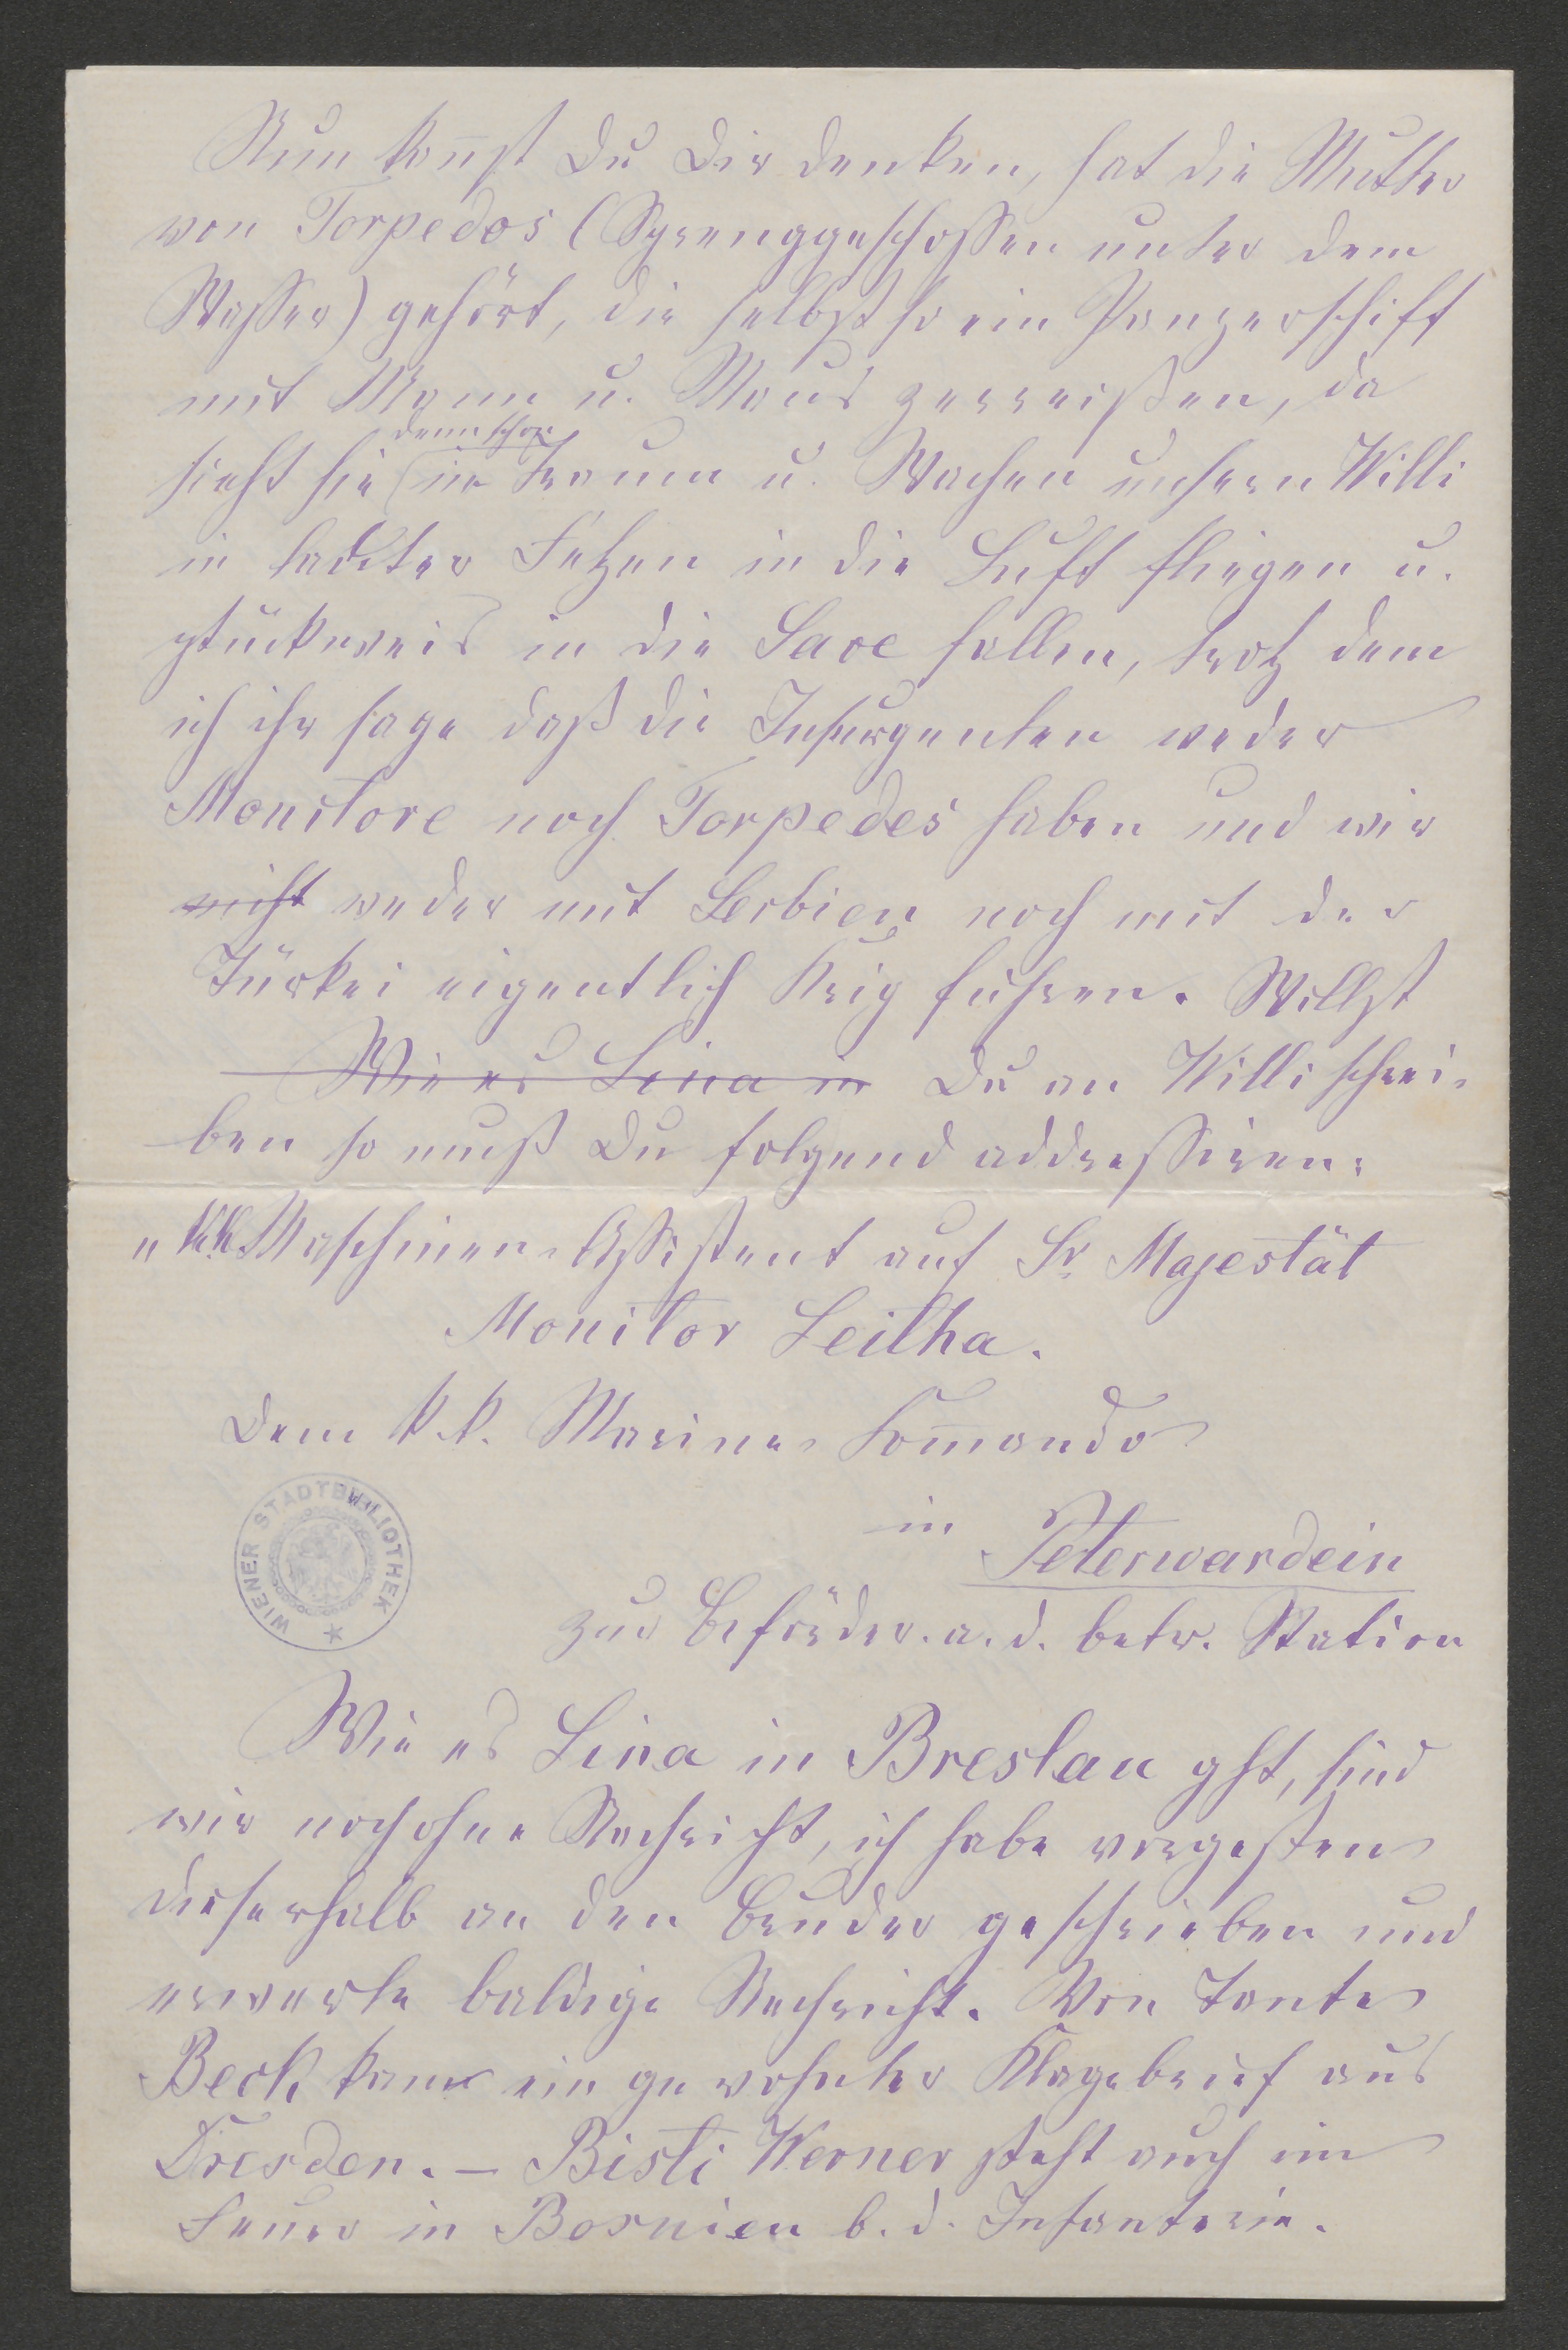 Nun kan̄st Du Dir denken, hat die Mutter
von Torpedos (Sprenggeschossen unter dem
Wasser) gehört, die selbst so ein Panzerschiff
mit Mann u. Maus zerreißen, da
denn schon
sieht sie in Traum u. Wachen unsern Willi
in lauter Fetzen in die Luft fliegen u.
stückweis in die Save fallen, trotz dem
ich ihr sage daß die Insurgenten weder
Monitore noch Torpedes haben und wir
nicht weder mit Serbien noch mit der
Türkei eigentlich Krig führen. Willst
Wie es Lina in Du an Willi schrei-
ben so muß Du folgend addressiren:
„k.k. Maschinen-Assistent auf Sr. Majestät
Monitor Leitha.
Dem k.k. Marine-Kom̄ando
in Peterwardein
zur Beförder. a. d. betr. Station
WIENER STADTBIBLIOTHEK
Wie es Lina in Breslau ght, sind
wir noch ohne Nachricht, ich habe vorgestern
dieserhalb an den Bruder geschrieben und
erwarte baldige Nachricht. Von Tante
Beck kam ein gewohnter Klagebrief aus
Dresden. — Bisti Werner steht auch im
Feuer in Bosnien b. d. Infanterie.